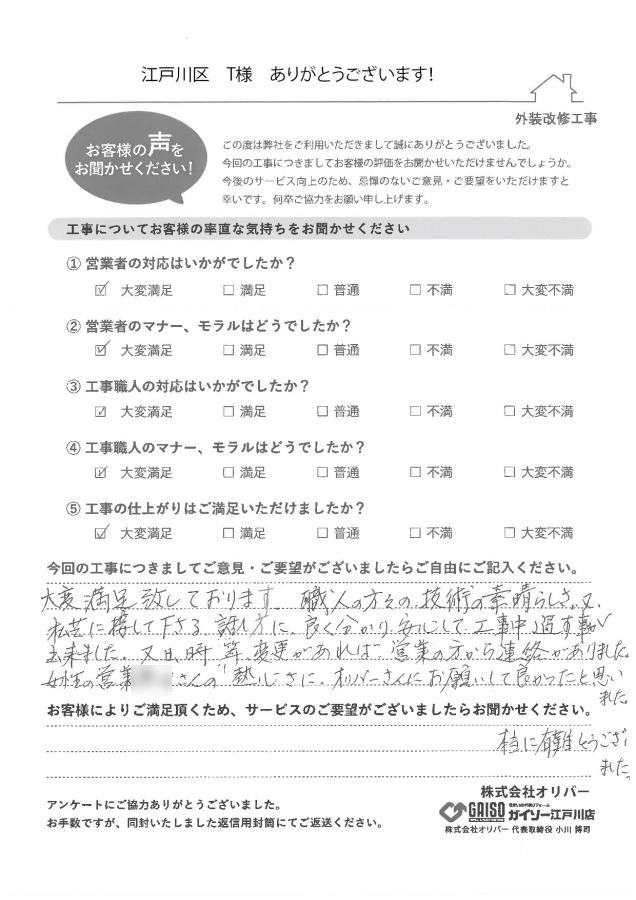 江戸川区　T様　ありがとうございます!
外装改修工事
お客様の声を
お聞かせください!
この度は弊社をご利用いただきまして誠にありがとうございました。
今回の工事につきましてお客様の評価をお聞かせいただけませんでしょうか。
今後のサービス向上のため、忌憚のないご意見・ご要望をいただけますと
幸いです。何卒ご協力をお願い申し上げます。
工事についてお客様の率直な気持ちをお聞かせください
① 営業者の対応はいかがでしたか？
☑ 大変満足 □ 満足 □ 普通 □ 不満 □ 大変不満
② 営業者のマナー、モラルはどうでしたか？
☑ 大変満足 □ 満足 □ 普通 □ 不満 □ 大変不満
③ 工事職人の対応はいかがでしたか？
☑ 大変満足 □ 満足 □ 普通 □ 不満 □ 大変不満
④ 工事職人のマナー、モラルはどうでしたか？
☑ 大変満足 □ 満足 □ 普通 □ 不満 □ 大変不満
⑤ 工事の仕上がりはご満足いただけましたか？
☑ 大変満足 □ 満足 □ 普通 □ 不満 □ 大変不満
今回の工事につきましてご意見・ご要望がございましたらご自由にご記入ください。
大変満足致しております。職人の方々の技術の素晴らしさ、又、
私共に接して下さる話し方に、良く分かり安心して工事中過す事が
出来ました。又日、時等変更があれば営業の方から連絡がありました。
女性の営業 さんの熱心さに、オリバーさんにお願いして良かったと思い
ました。
お客様によりご満足頂くため、サービスのご要望がございましたらお聞かせください。
本当に有難とうござい
ました。
株式会社オリバー
アンケートにご協力ありがとうございました。
お手数ですが、同封いたしました返信用封筒にてご返送ください。
GAISO ガイソー江戸川店
株式会社オリバー 代表取締役 小川 博司